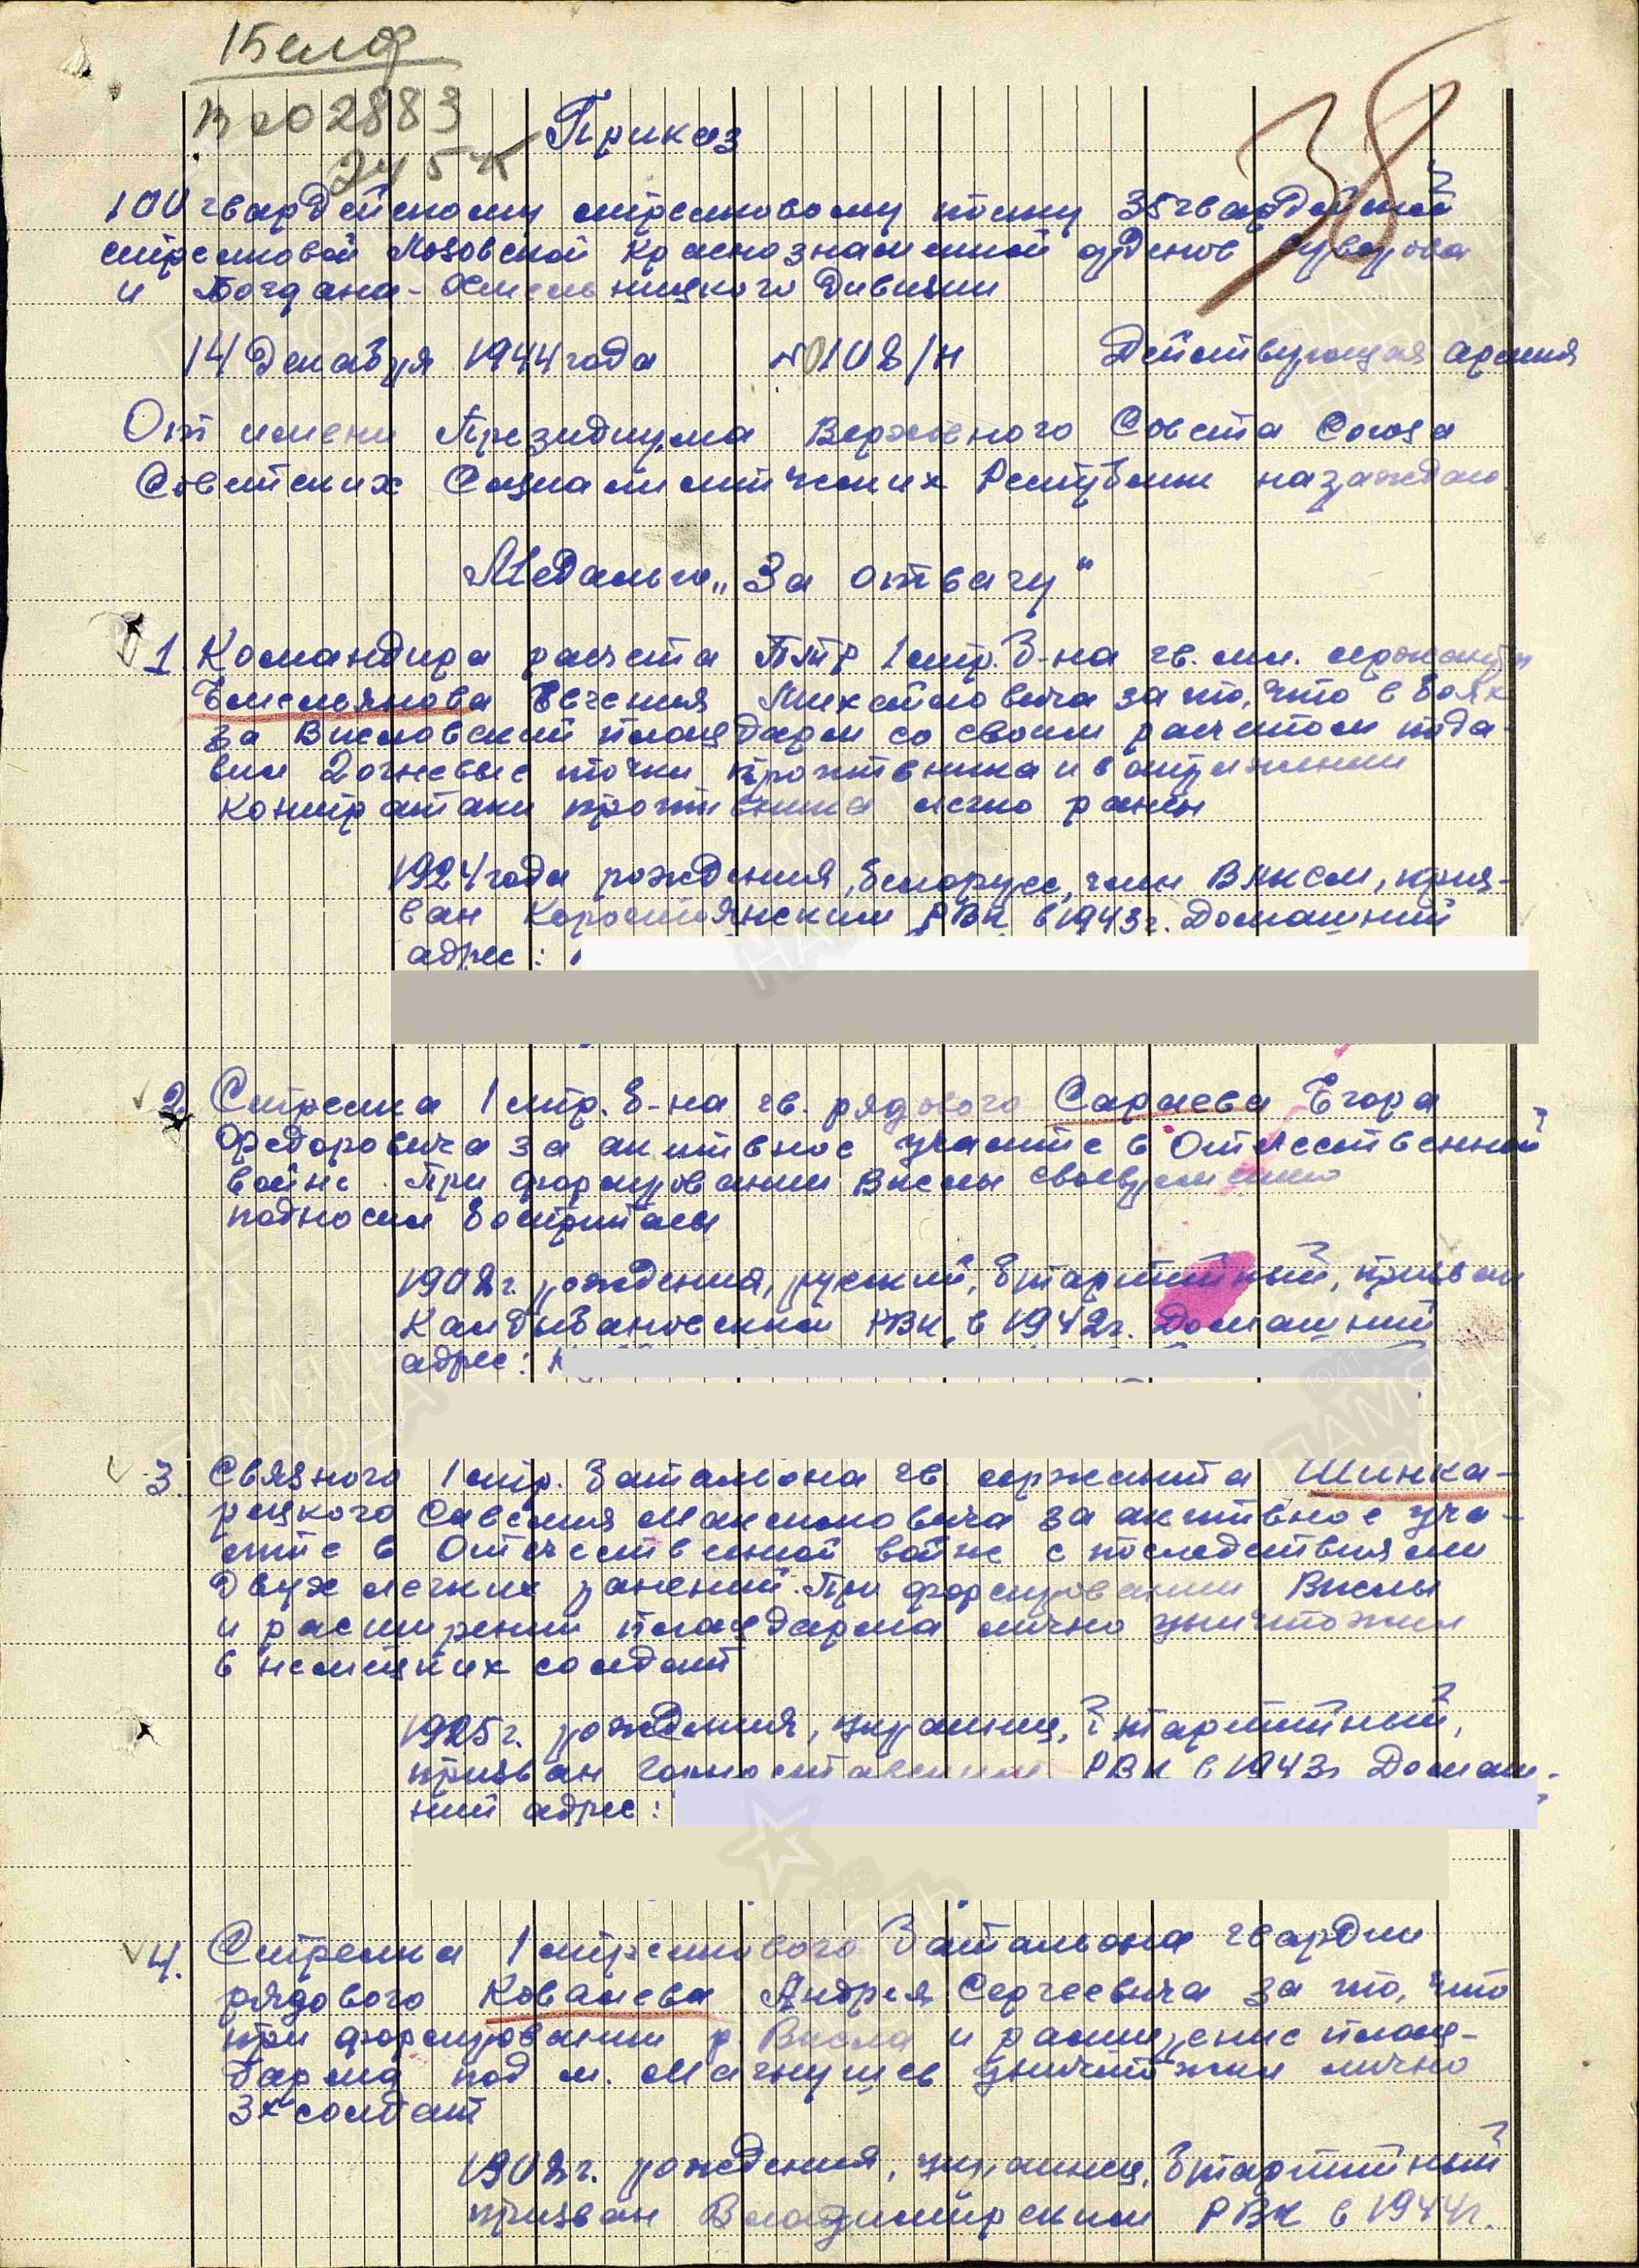 38
Приказ
100 гвардейскому стрелковому полку 35 гвардейской
стрелковой Лозовской Краснознаменной орденов Суворова
и Богдана-Хмельницкого дивизии
14 декабря 1944 года №0108/н Действующая армия
От имени Президиума Верховного Совета Союза
Советских Социалистических Республик награждаю
Медалью „За отвагу"
1. Командира расчета ПТР 1 стр. б-на гв. мл. сержанта
Емельянова Евгения Михайловича за то, что в боях
за Висловский плацдарм со своим расчетом пода-
вил 2 огневые точки противника и в отражении
контратаки противника легко ранен
1924 года рождения, белорус, член ВЛКСМ, приз-
ван РВК в 1943г. Домашний
адрес:
2. Стрелка 1 стр. б-на гв. рядового Сараева Егора
Федоровича за активное участие в Отечественной
войне. При форсировании Вислы своевременно
подносил боеприпасы
1908г. рождения, русский, б/партийный, призван
РВК в 1942г. Домашний
адрес:
3. Связного 1 стр. батальона гв. сержанта Шинка-
рецкого Савелия Максимовича за активное уча-
стие в Отечественной войне с последствиями
двух легких ранений. При форсировании Вислы
и расширении плацдарма лично уничтожил
6 немецких солдат
1925г. рождения, украинец, б/партийный,
призван РВК в 1943г Домаш-
ний адрес:
4. Стрелка 1 стрелкового батальона гвардии
рядового Ковалева Андрея Сергеевича за то, что
при форсировании р. Висла и расширение плац-
дарма под м. Магнушев уничтожил лично
3х солдат
1908г. рождения, украинец, б/партийный
призван Владимирским РВК в 1944г.